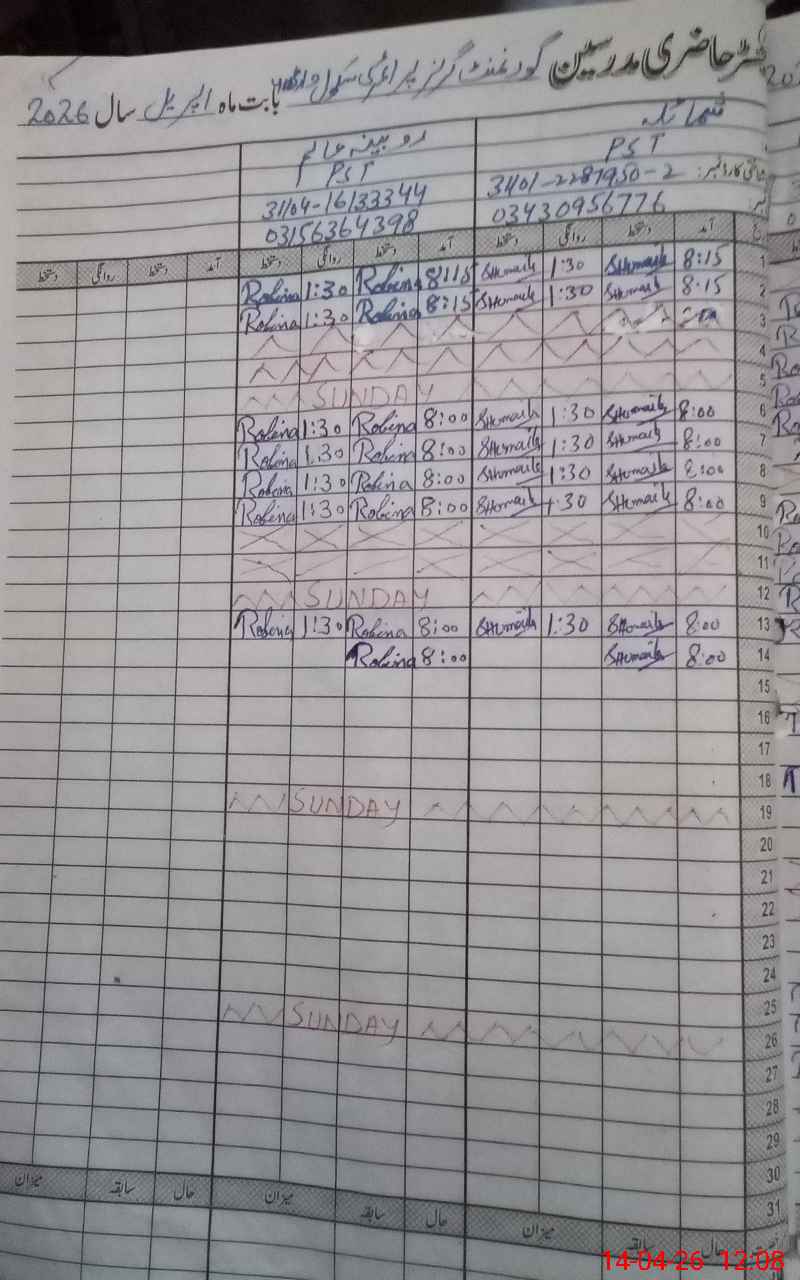 رجسٹر حاضری مدرسین گورنمنٹ گرلز پرائمری سکول بابت ماہ اپریل سال 2026
شمائلہ روبینہ عالم
PST PST
شناختی کارڈ نمبر: 31101-2281950-2 31104-1613334 4
03430956776 03156364398
آمد دستخط روانگی دستخط آمد دستخط روانگی دستخط آمد دستخط روانگی دستخط
1 8:15 SHumaila 1:30 SHumaila 8:15 Robina 1:30 Robina
2 8:15 SHumaila 1:30 SHumaila 8:15 Robina 1:30 Robina
3
4
5 SUNDAY
6 8:00 SHumaila 1:30 SHumaila 8:00 Robina 1:30 Robina
7 8:00 SHumaila 1:30 SHumaila 8:00 Robina 1:30 Robina
8 8:00 SHumaila 1:30 SHumaila 8:00 Robina 1:30 Robina
9 8:00 SHumaila 1:30 SHumaila 8:00 Robina 1:30 Robina
10
11
12 SUNDAY
13 8:00 SHumaila 1:30 SHumaila 8:00 Robina 1:30 Robina
14 8:00 SHumaila 8:00 Robina
15
16
17
18
19 SUNDAY
20
21
22
23
24
25
26 SUNDAY
27
28
29
30
31
حال سابقہ میزان حال سابقہ میزان حال سابقہ میزان
14-04-26 12:08